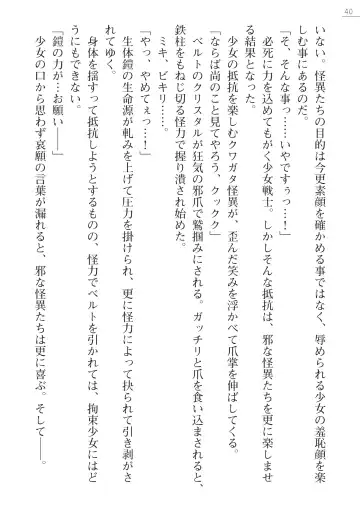 40
いない。怪異たちの目的は今更素顔を確かめる事ではなく、辱められる少女の羞恥顔を楽
しむ事にあるのだ。
「そ、そんな事……いやですぅっ…！」
必死に力を込めてもがく少女戦士。しかしそんな抵抗は、邪な怪異たちを更に楽しませ
る結果となった。
少女の抵抗を楽しむクワガタ怪異が、歪んだ笑みを浮かべて爪掌を伸ばしてくる。
「ならば尚のこと見てやろう、クックク」
ベルトのクリスタルが狂気の邪爪で鷲掴みにされる。ガッチリと爪を食い込まされると、
鉄柱をもねじ切る怪力で握り潰され始めた。
ミキ、ビキリ――。
「やっ、やめてぇっ…！」
生体鎧の生命源が軋みを上げて圧力を掛けられ、更に怪力によって抉られて引き剥がさ
れてゆく。
身体を揺すって抵抗しようとするものの、怪力でベルトを引かれては、拘束少女にはど
うにもできない。
「鎧の力が…お願い――」
少女の口から思わず哀願の言葉が漏れると、邪な怪異たちは更に喜ぶ。そして――。